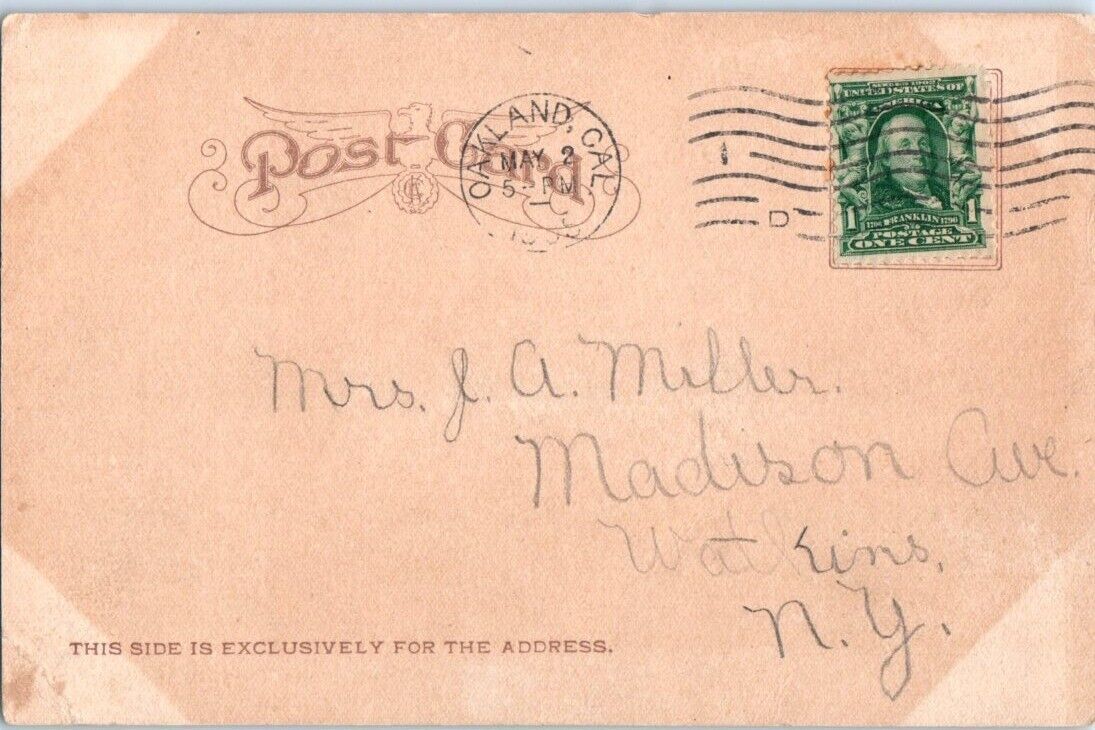 Post Card
OAKLAND, CAL.
MAY 2
5 - PM
D
SERIES 1902
UNITED STATES OF
AMERICA
1 1706 FRANKLIN 1790 1
POSTAGE
ONE CENT
Mrs. J. A. Miller.
Madison Ave.
Watkins,
N. Y.
THIS SIDE IS EXCLUSIVELY FOR THE ADDRESS.